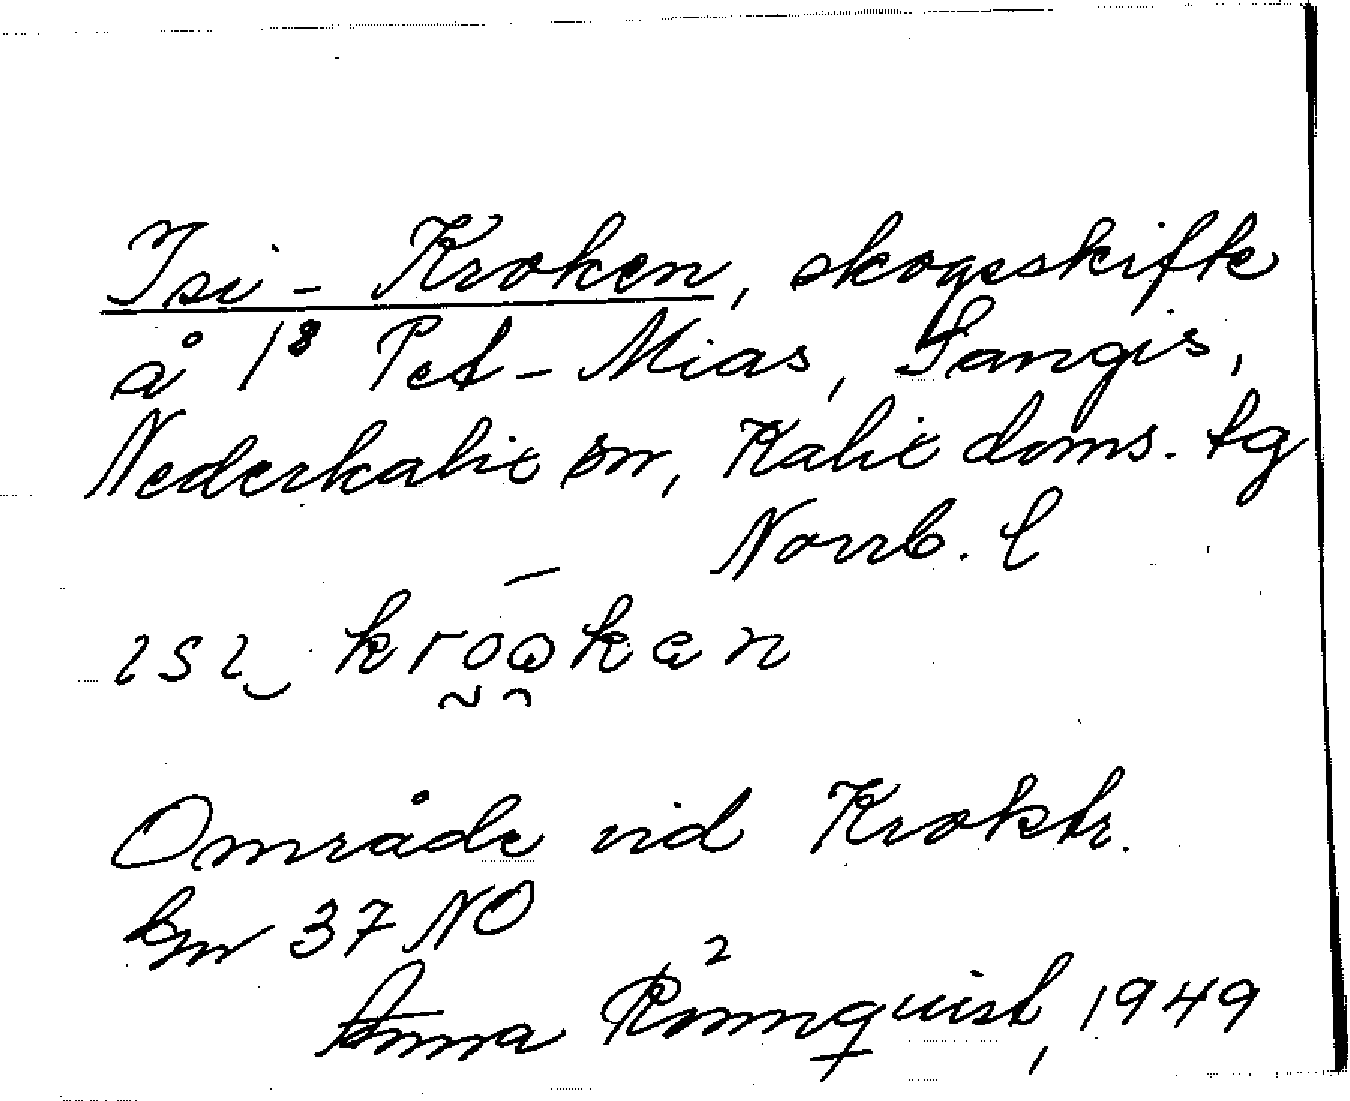 Isi-Kroken, skogsskifte
å 1⁸ Pet-Mias, Sangis,
Nederkalix sn, Kalix doms. tg
Norrb. l
ısı krooken
Område vid Kroktr.
km 37 NO
Anna Rönnquist, 1949